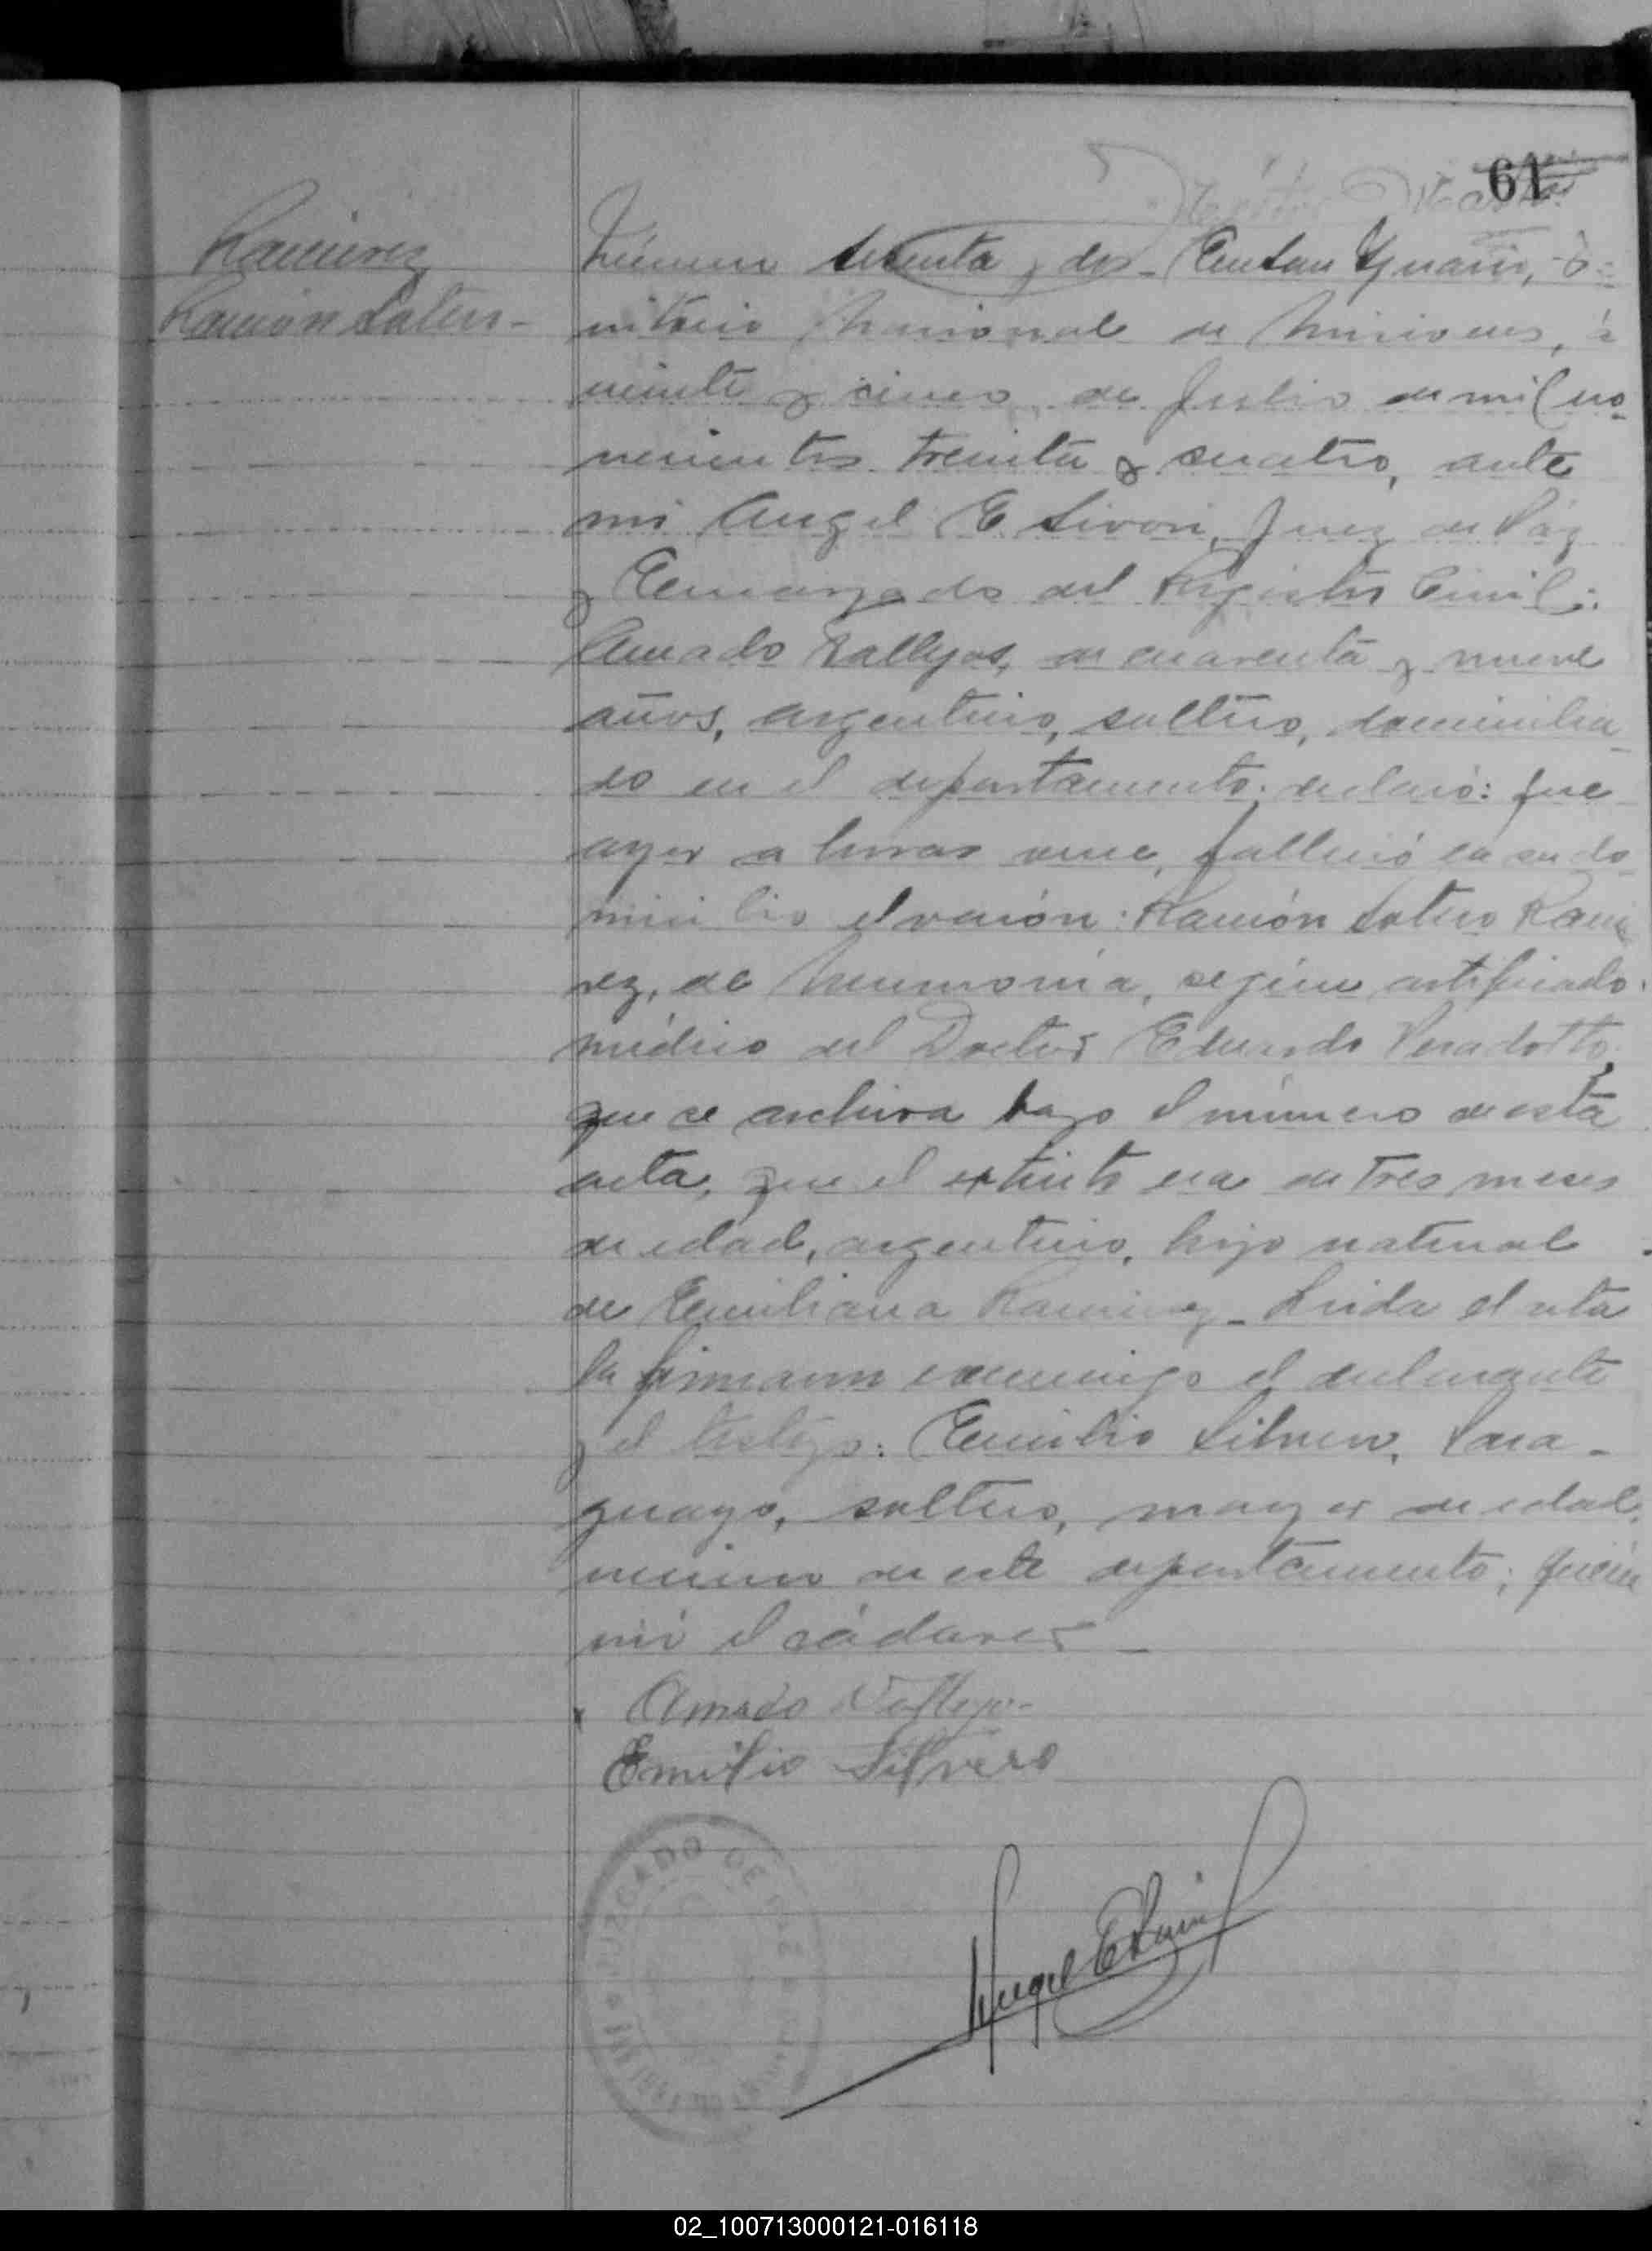 61
Ramirez
Ramón Sotero-
Número sesenta y dos - En San Ygnacio, Te=
rritorio Nacional de Misiones, á
veinte y cinco de Julio de mil no-
vecientos treinta y cuatro, ante
mi Angel E. Sivori, Juez de Páz
y Encargado del Registro Civil:
Amado Vallejos, de cuarenta y nueve
años, argentino, soltero, domicilia-
do en el departamento, declaró: que
ayer a horas once, falleció en su do-
micilio el varón: Ramón Sotero Rami
rez, de Neumonia, según certificado
médico del Doctor Eduardo
que se archiva bajo el número de esta
acta, que el extinto era de tres meses
de edad, argentino, hijo natural
de Emiliana Ramirez - Leida el acta
la firmaron conmigo el declarante
y el testigo: Emilio Silvero, Para-
guayo, soltero, mayor de edad,
vecino de este departamento; quien
vió el cádaver -
Amado Vallejo-
Emilio Silvero
JUZGADO DE PAZ
02_100713000121-016118